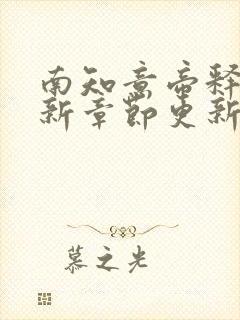 南知意帝释
新章节更新
慕之光